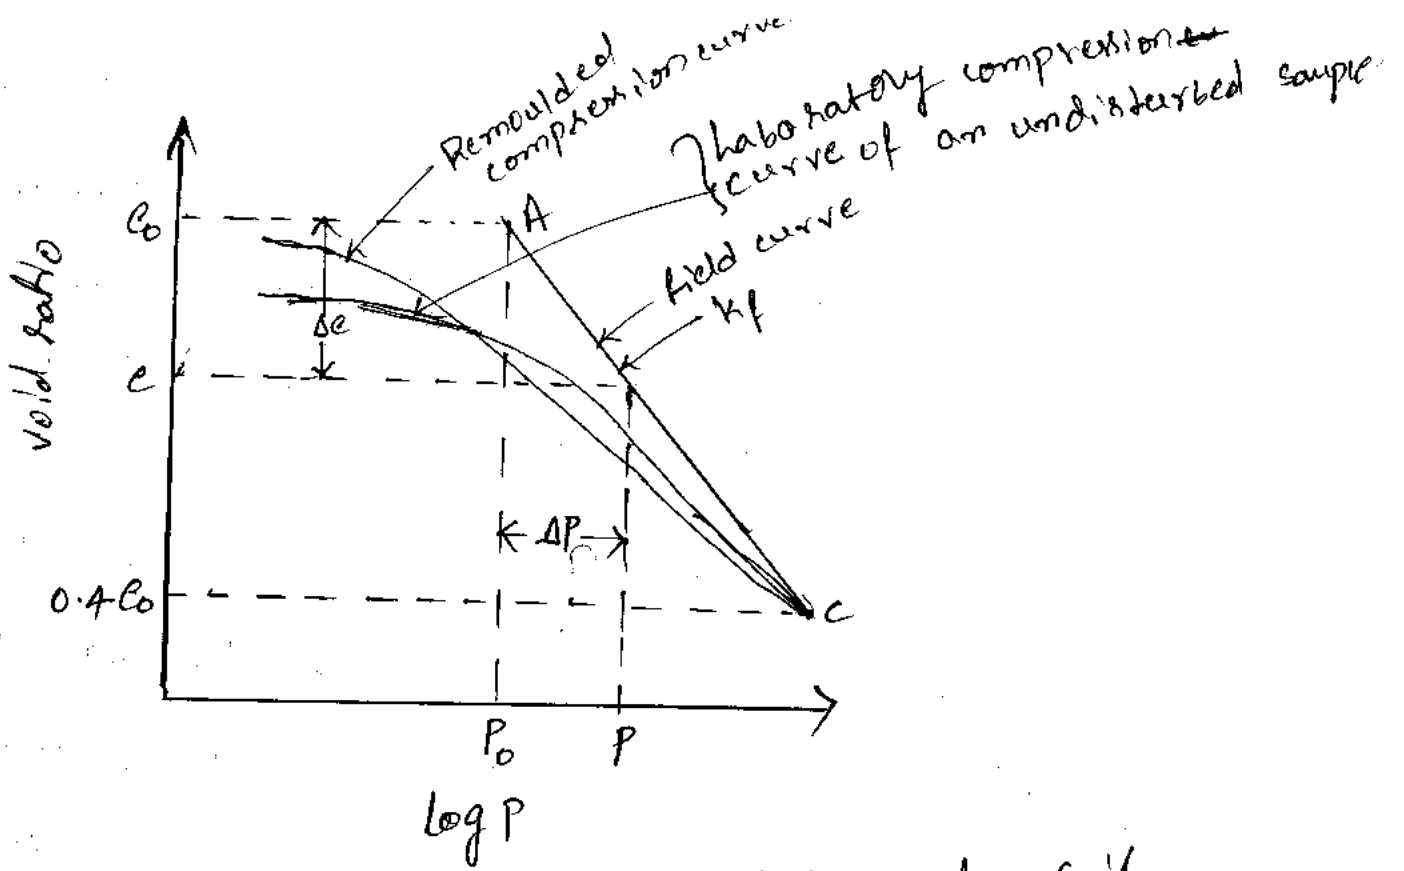 Remoulded
compression curve.
Laboratory compression
curve of an undisturbed sample.
field curve
Kf
A
e₀
void ratio
Δe
e
ΔP
0.4 e₀
C
P₀
P
log P